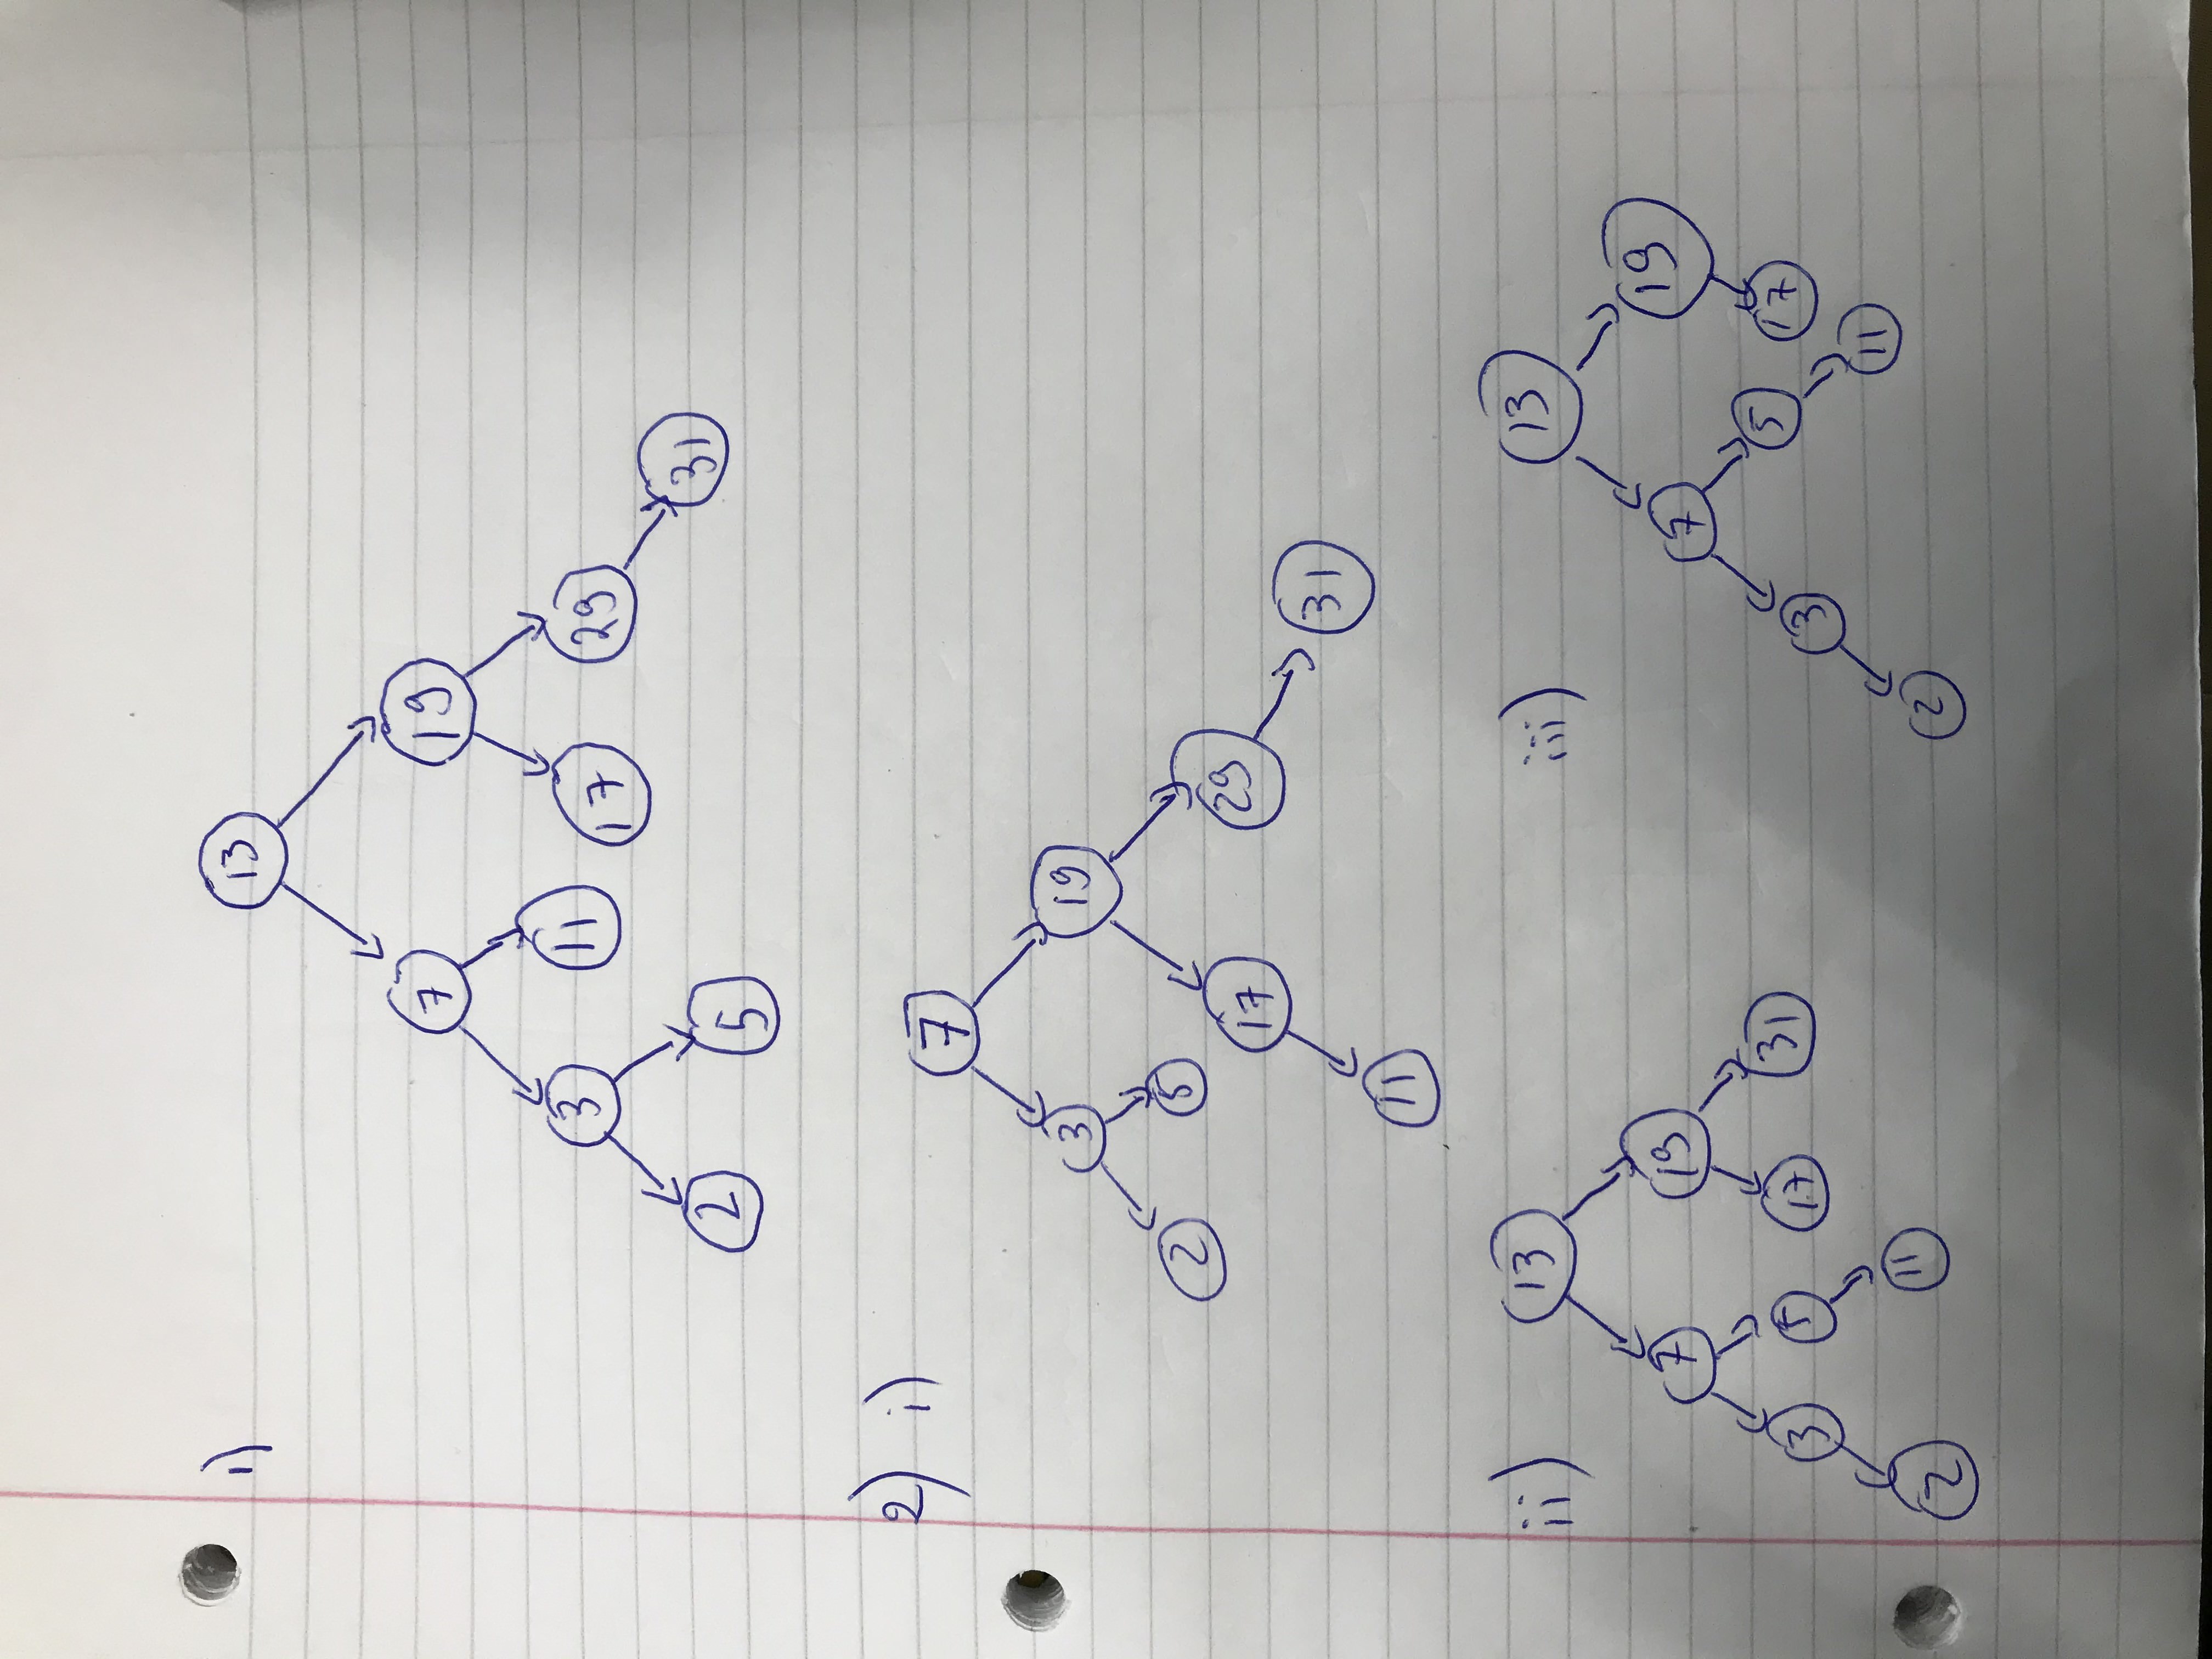 1)
13
7 19
3 11 17 29
2 5 31
2) i)
7
3 19
2 5 17 29
11 31
ii) 13
7 19
3 5 17 31
2 11
iii) 13
7 19
3 5 17
2 11